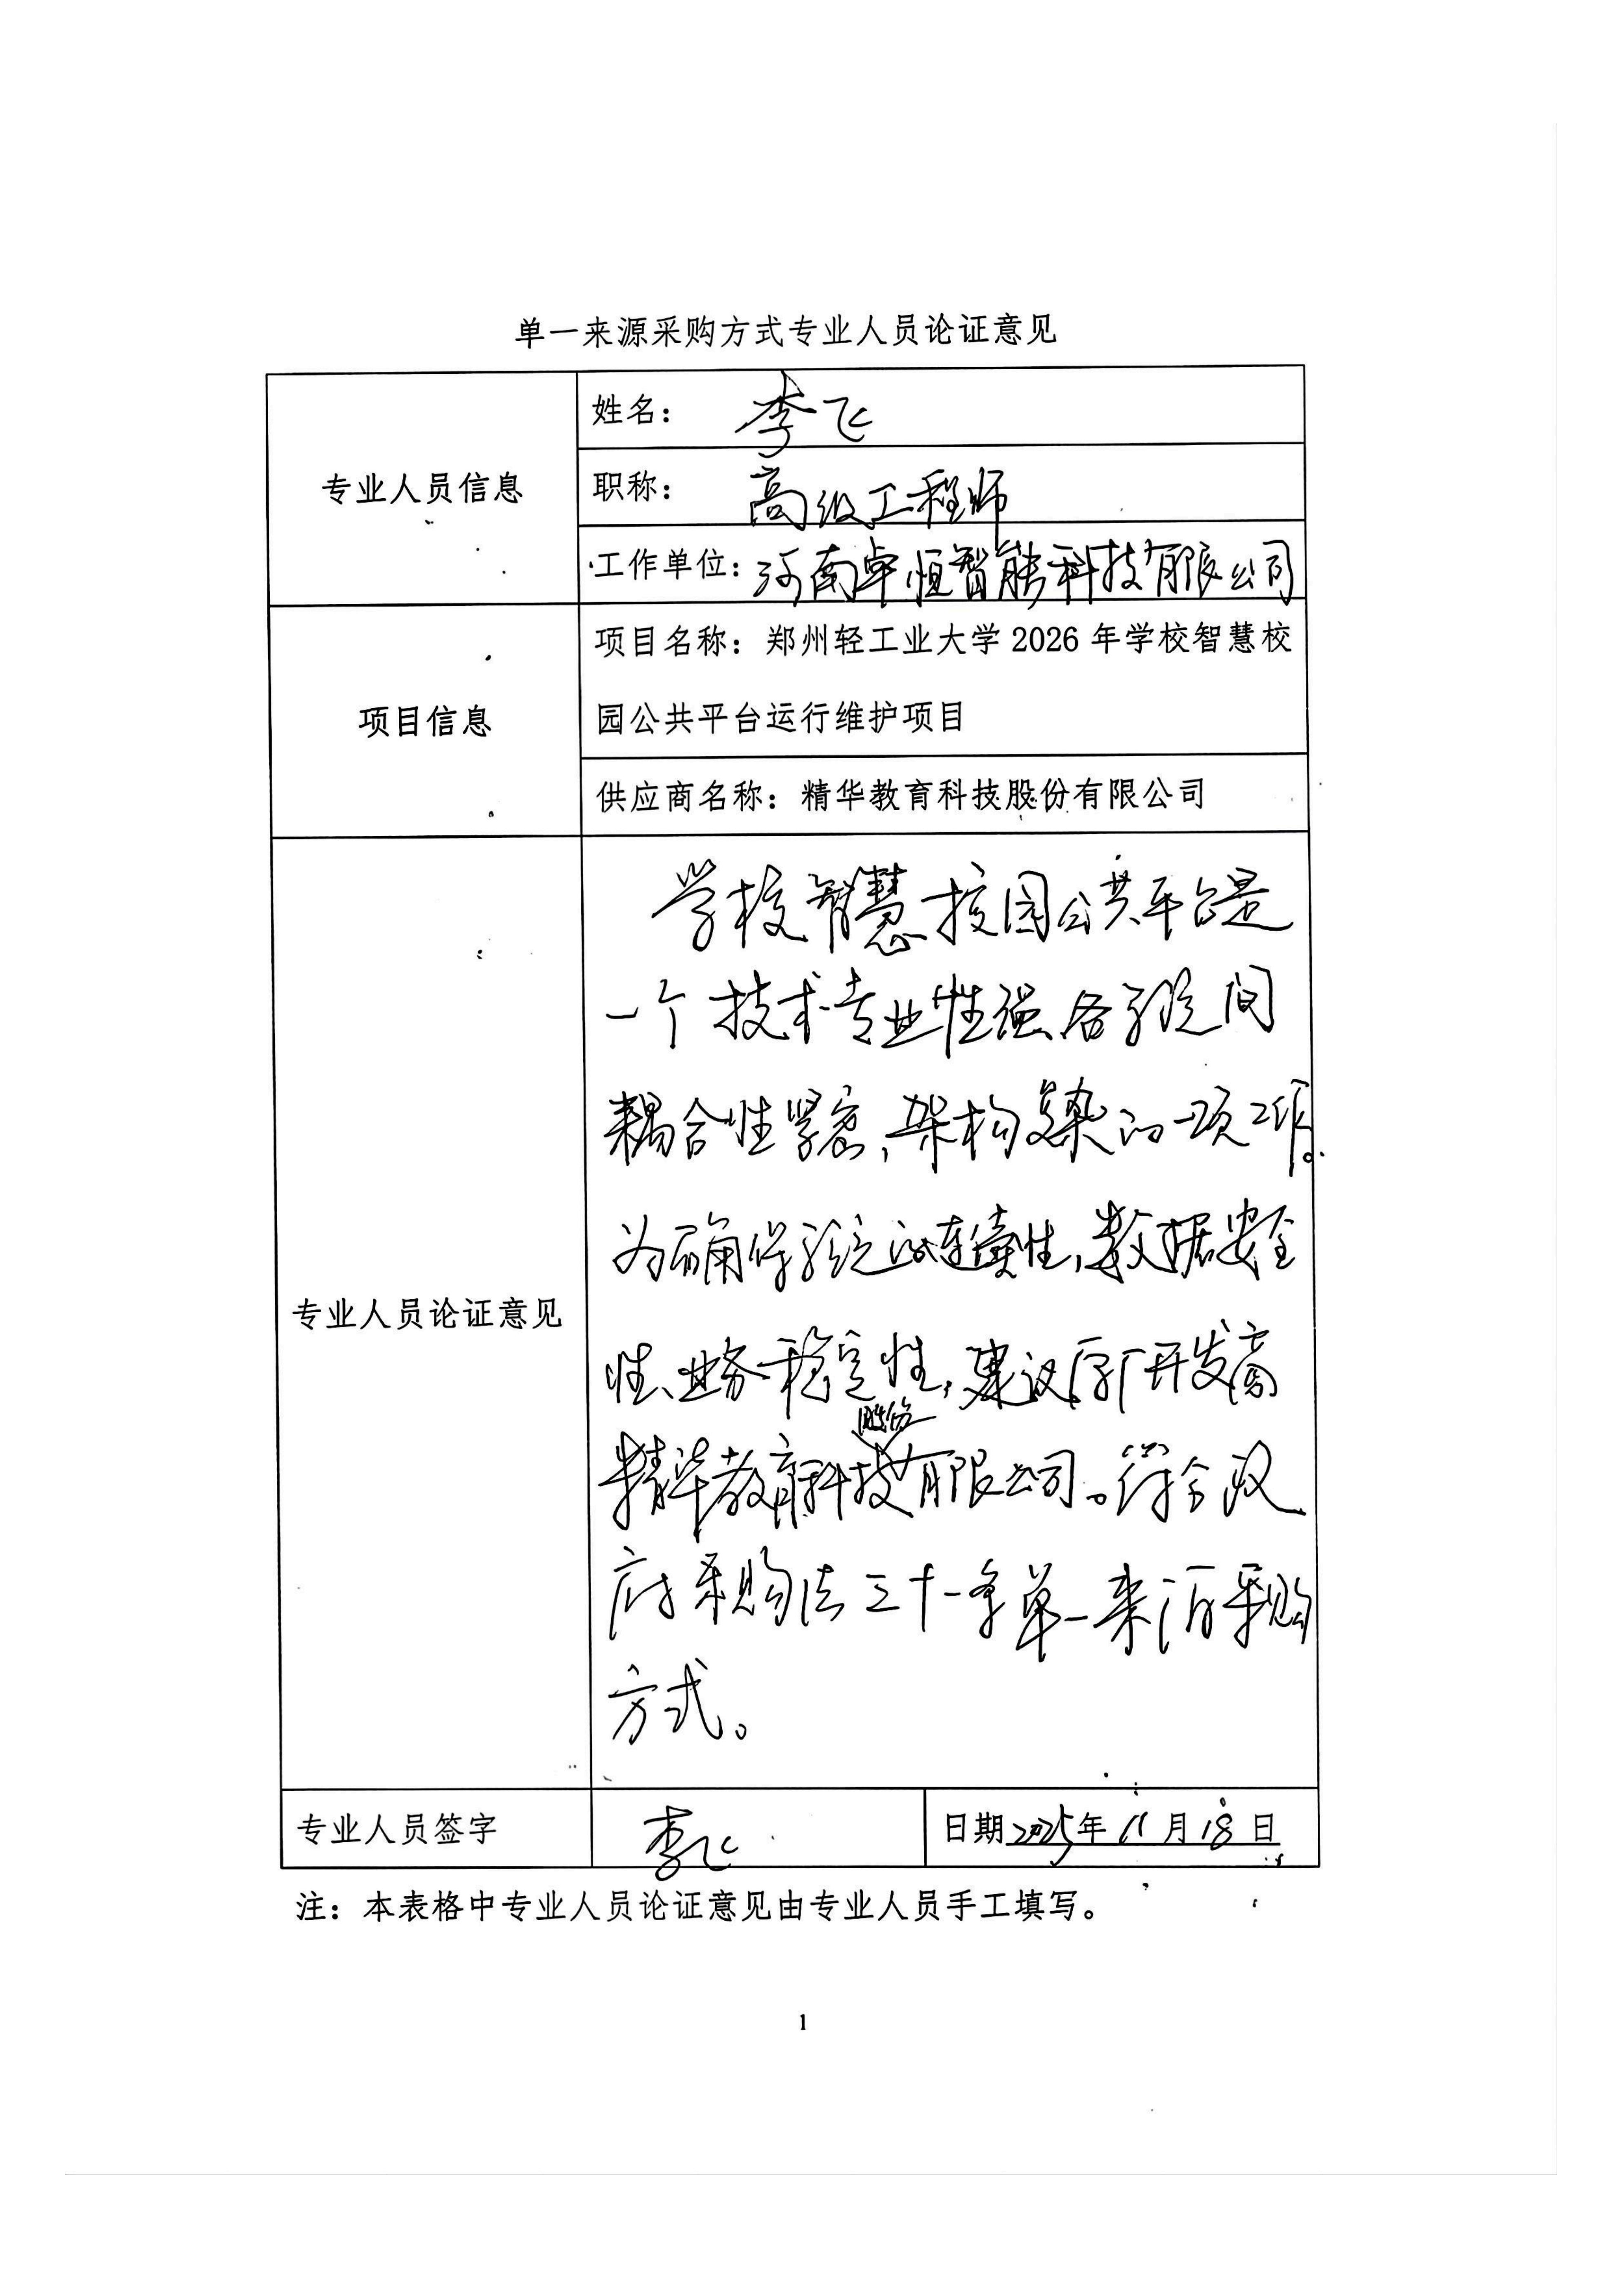 单一来源采购方式专业人员论证意见
专业人员信息
姓名：李飞
职称：高级工程师
工作单位：河南卓恒智能科技有限公司
项目信息
项目名称：郑州轻工业大学2026年学校智慧校
园公共平台运行维护项目
供应商名称：精华教育科技股份有限公司
专业人员论证意见
学校智慧校园公共平台是
一个技术专业性强、各系统间
耦合性紧密，架构复杂的一项工作。
为确保系统的连续性，数据安全
性、业务稳定性，建议原厂开发商
股份
精华教育科技有限公司。符合政
府采购法三十一条单一来源采购
方式。
专业人员签字
李飞
日期2025年11月18日
注：本表格中专业人员论证意见由专业人员手工填写。
1